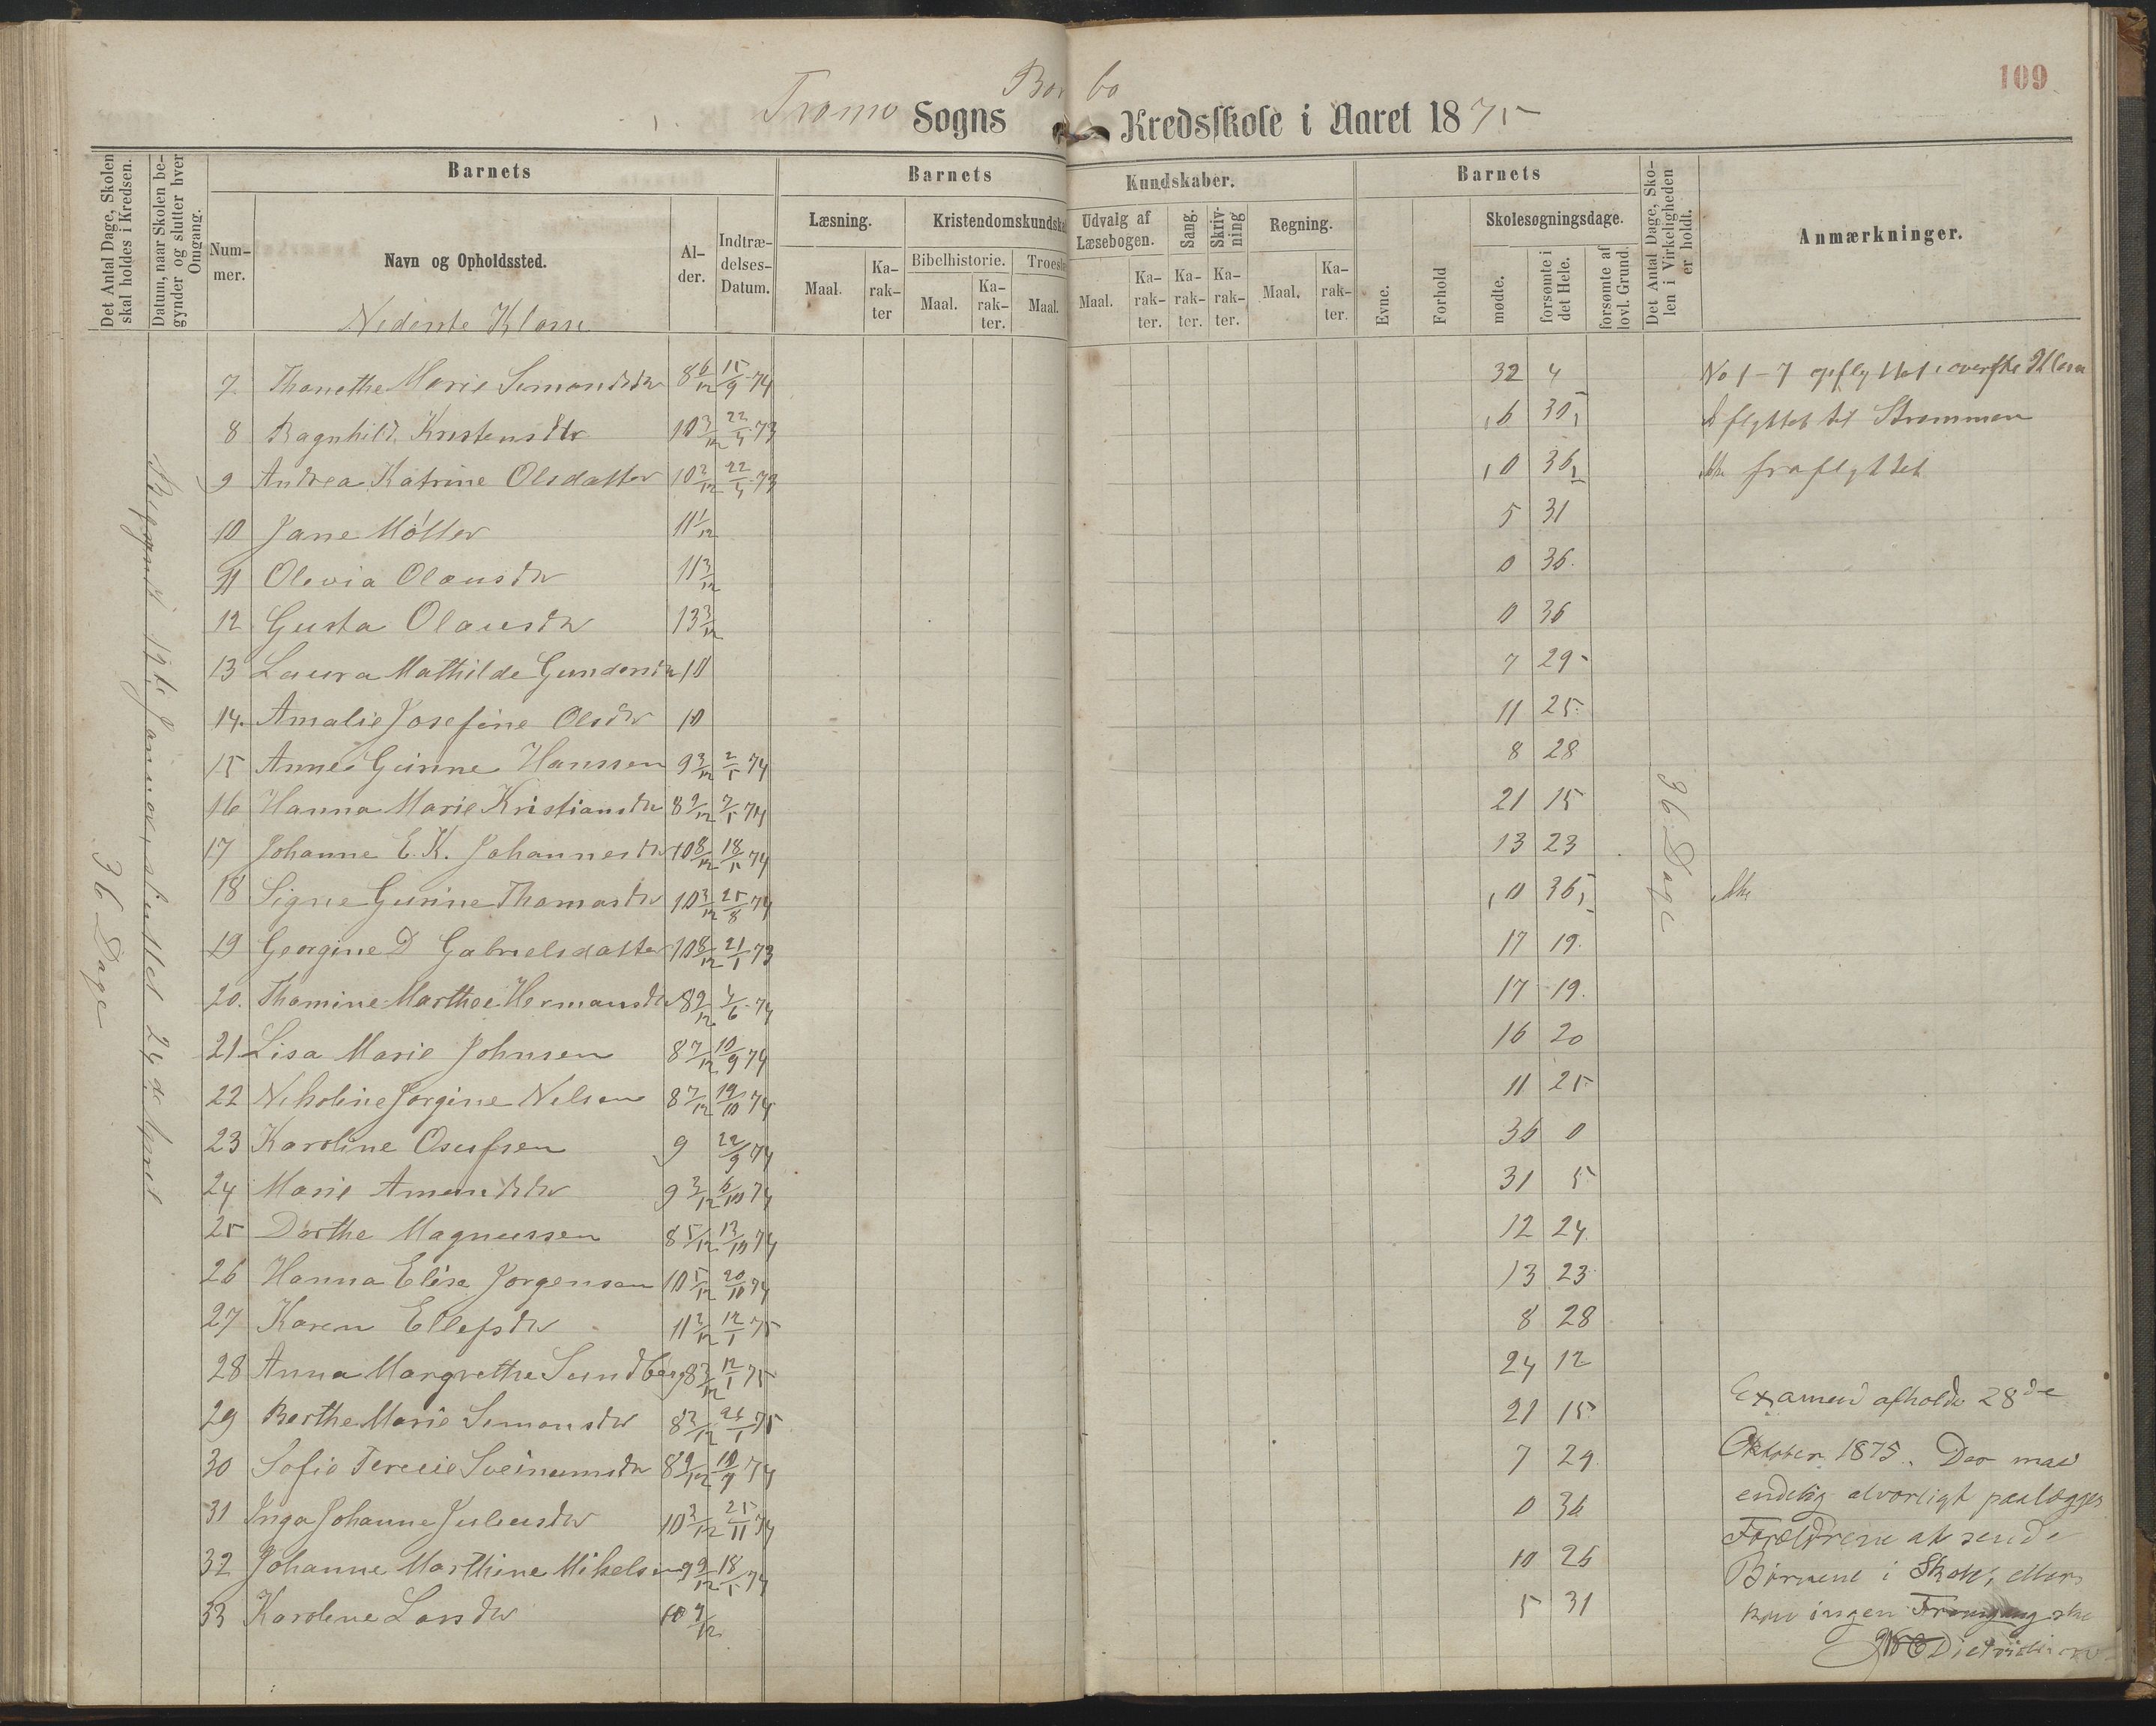 109
Tromø Sogns Borbo Kredsskole i Aaret 1875
Det Antal Dage, Skolen skal holdes i Kredsen.
Datum, naar Skolen begynder og slutter hver Omgang.
Barnets
Barnets
Kundskaber.
Barnets
Det Antal Dage, Skolen i Virkeligheden er holdt.
Anmærkninger.
Nummer.
Navn og Opholdssted.
Alder.
Indtrædelses-Datum.
Læsning.
Kristendomskundska
Udvalg af Læsebogen.
Sang.
Skrivning
Regning.
Evne.
Forhold
Skolesøgningsdage.
Maal.
Karakter
Bibelhistorie.
Troesl
Maal.
Karakter.
Maal.
Maal.
Karakter.
Karakter.
Karakter.
Maal.
Karakter.
mødte.
forsømte i det Hele.
forsømte af lovl. Grund.
Nederste Klasse
36 Dage
Begyndt 19de Januar, sluttet 24de April
36 Dage
7. Thanethe Marie Simondsdtr 8 6/12 15/9 74 32 4 No 1-7 opflyttet i øverste Klasse
8 Ragnhild Kristensdtr 10 3/12 22/4 73 6 30 flyttet til Strømmen
9 Andrea Katrine Olsdatter 10 2/12 22/4 73 0 36 fraflyttet
10 Jane Møller 11 1/12 5 31
11 Olevia Olausdtr 11 3/12 0 36
12 Gusta Olausdtr 13 3/12 0 36
13 Laura Mathilde Gundersdtr 10 7 29
14. Amalie Josefine Olsdtr 10 11 25
15 Anne Gunine Hanssen 9 3/12 2/5 74 8 28
16 Hanna Marie Kristiansdtr 8 9/12 7/5 74 21 15
17 Johanne E. K. Johannesdtr 10 8/12 18/5 74 13 23
18 Signe Gunine Thomasdtr 10 3/12 25/8 74 0 36
19 Georgine D Gabrielsdatter 10 8/12 21/1 73 17 19
20. Thomine Marthee Hermansdtr 8 9/12 4/6 74 17 19.
21 Lisa Marie Johnsen 8 7/12 10/9 74 16 20
22 Nikoline Jørgine Nilsen 8 7/12 19/10 74 11 25
23 Karoline Osufsen 9 22/9 74 36 0
24 Marie Amundsdtr 9 3/12 6/10 74 31 5
25 Dorthe Magnussen 8 5/12 13/10 74 12 24
26 Hanna Elisa Jørgensen 10 5/12 20/10 74 13 23
27 Karen Ellefsdtr 11 2/12 12/1 75 8 28
28 Anna Margrethe Sundberg 8 3/12 12/1 75 24 12
29 Berthe Marie Simonsdtr 8 3/12 26/1 75 21 15
30 Sofie Terecie Sveinumsdtr 8 9/12 10/9 74 7 29
31 Inga Johanne Juliusdtr 10 3/12 25/11 74 0 36
32 Johanne Marthine Mikelsen 9 9/12 18/5 74 10 26
33 Karoline Larsdtr 10 9/12 5 31
Examen afholdt 28de
Oktober 1875. Der maa
endelig alvorligt paalægges
Forældrene at sende
Børnene i Skole, ellers
kan ingen Fremgang ske
Dietrichson